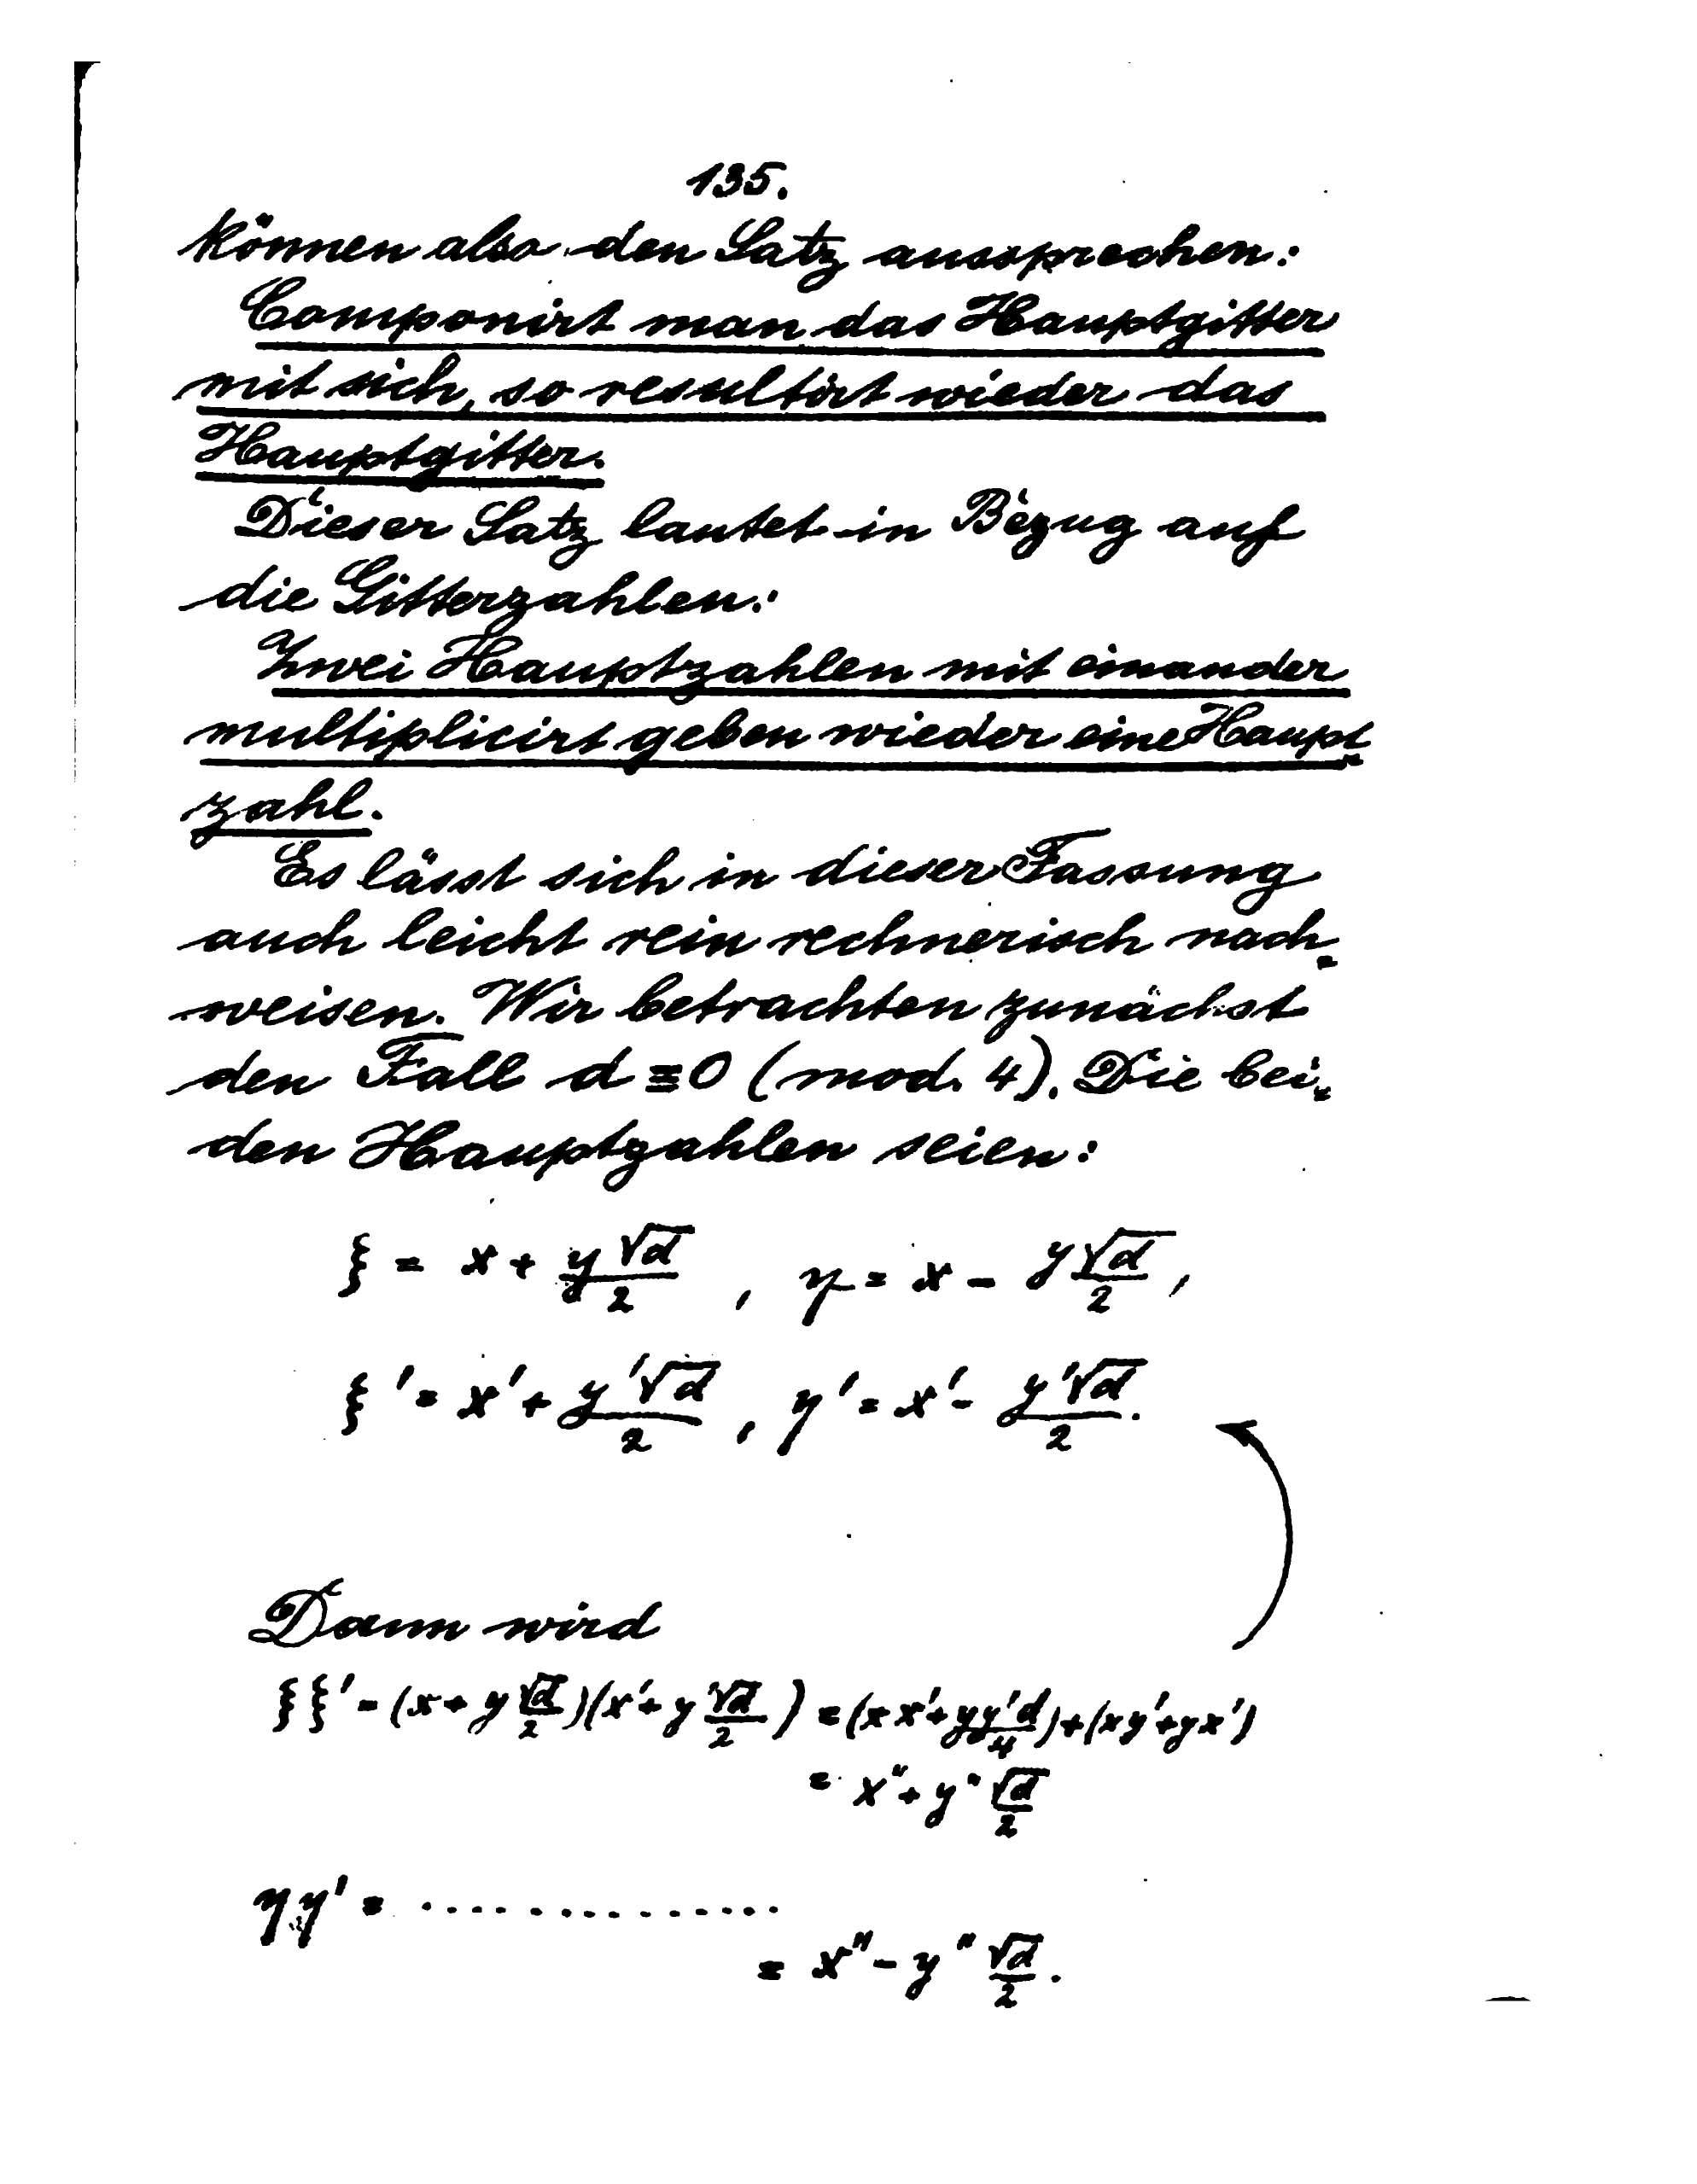 135.
können also den Satz aussprechen:
Componirt man das Hauptgitter
mit sich, so resultirt wieder das
Hauptgitter.
Dieser Satz lautet in Bezug auf
die Gitterzahlen:
Zwei Hauptzahlen mit einander
multiplicirt geben wieder eine Haupt=
zahl.
Es lässt sich in dieser Fassung
auch leicht rein rechnerisch nach=
weisen. Wir betrachten zunächst
den Fall d ≡ 0 (mod. 4). Die bei=
den Hauptzahlen seien:
ξ = x + y√d/2 , η = x - y√d/2 ,
ξ' = x' + y'√d/2 , η' = x' - y'√d/2 .
Dann wird
ξξ' = (x + y √d/2)(x' + y' √d/2) = (xx' + yy'd/4) + (xy' + yx')
= x" + y" √d/2
ηη' = ..............
= x" - y" √d/2 .